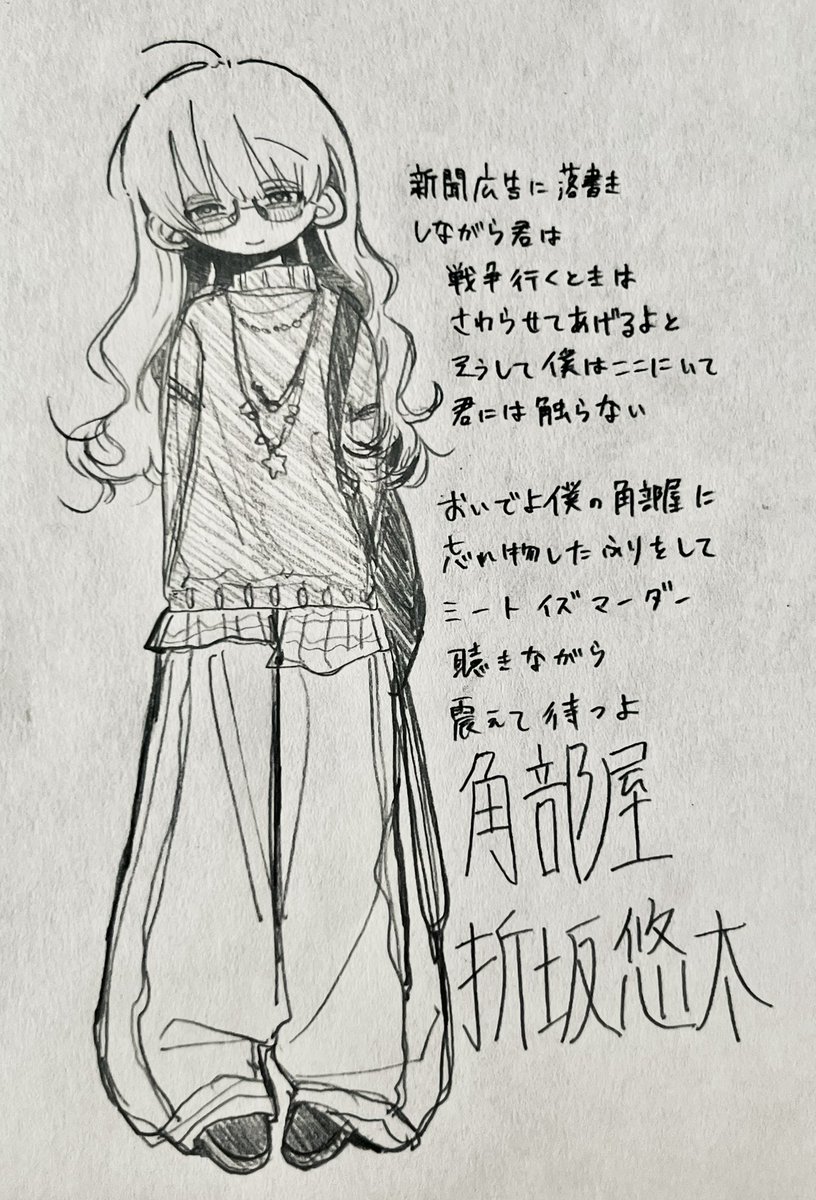 新聞広告に落書き
しながら君は
戦争行くときは
さわらせてあげるよと
そうして僕はここにいて
君には触らない
おいでよ僕の角部屋に
忘れ物したふりをして
ミートイズマーダー
聴きながら
震えて待つよ
角部屋
折坂悠太